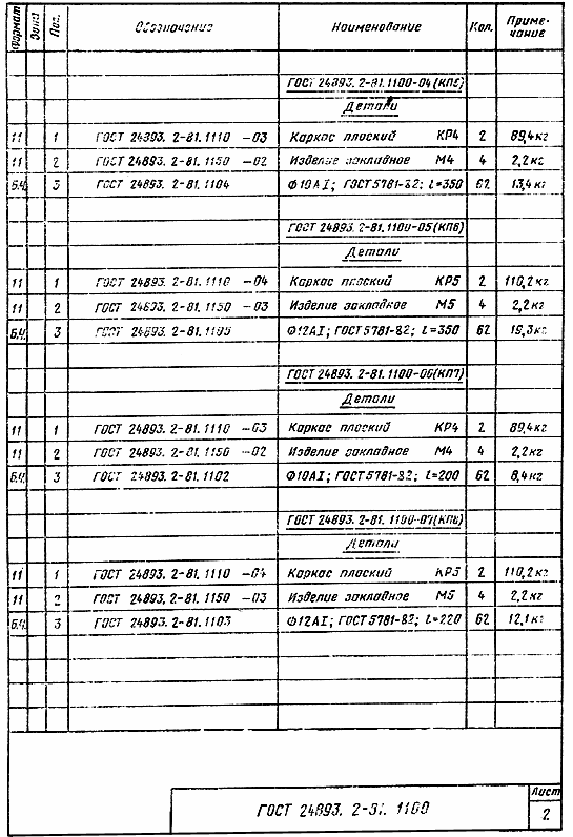 Формат Зона Поз. Обозначение Наименование Кол. Приме-
чание
ГОСТ 24893.2-81.1100-04(КП5)
Детали
11 1 ГОСТ 24893.2-81.1110 -03 Каркас плоский КР4 2 89,4кг
11 2 ГОСТ 24893.2-81.1150 -02 Изделие закладное М4 4 2,2кг
Б.Ч. 3 ГОСТ 24893.2-81.1104 Ф10АI; ГОСТ5781-82; l=350 62 13,4кг
ГОСТ 24893.2-81.1100-05(КП6)
Детали
11 1 ГОСТ 24893.2-81.1110 -04 Каркас плоский КР5 2 110,2кг
11 2 ГОСТ 24893.2-81.1150 -03 Изделие закладное М5 4 2,2кг
Б.Ч. 3 ГОСТ 24893.2-81.1105 Ф12АI; ГОСТ5781-82; l=350 62 19,3кг
ГОСТ 24893.2-81.1100-06(КП7)
Детали
11 1 ГОСТ 24893.2-81.1110 -03 Каркас плоский КР4 2 89,4кг
11 2 ГОСТ 24893.2-81.1150 -02 Изделие закладное М4 4 2,2кг
Б.Ч. 3 ГОСТ 24893.2-81.1102 Ф10АI; ГОСТ5781-82; l=200 62 8,4кг
ГОСТ 24893.2-81.1100-07(КП8)
Детали
11 1 ГОСТ 24893.2-81.1110 -04 Каркас плоский КР5 2 110,2кг
11 2 ГОСТ 24893.2-81.1150 -03 Изделие закладное М5 4 2,2кг
Б.Ч. 3 ГОСТ 24893.2-81.1103 Ф12АI; ГОСТ5781-82; l=220 62 12,1кг
ГОСТ 24893.2-81.1100
Лист
2